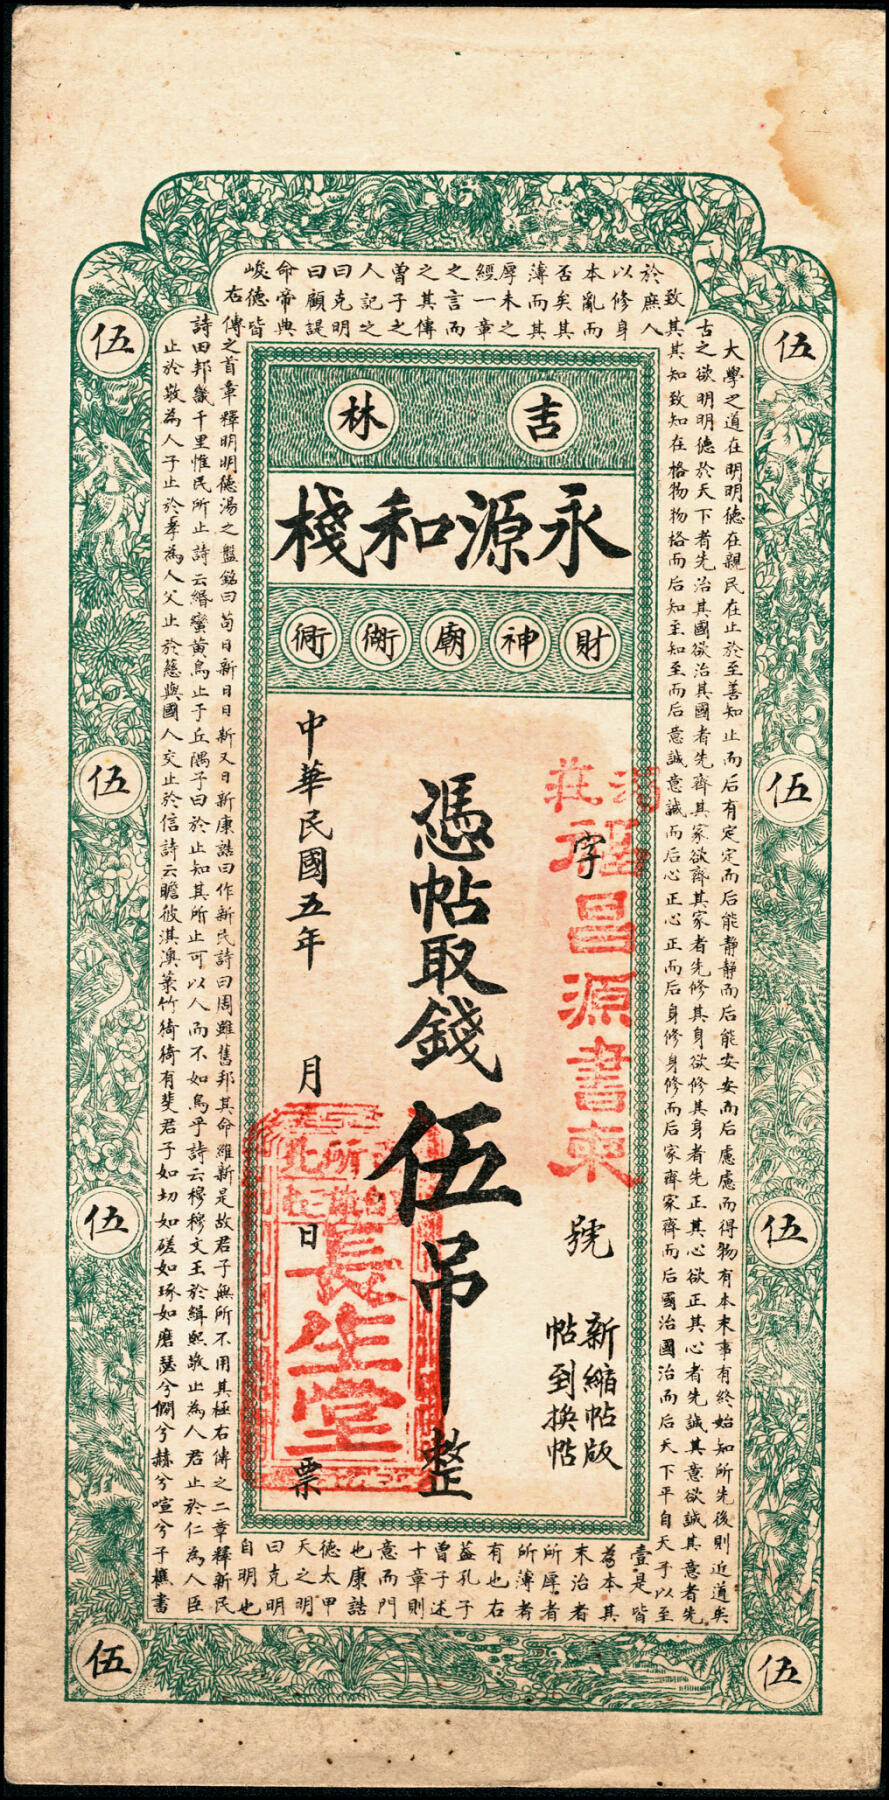 吉林
永源和棧
財神廟衚衕
字
號
新縮帖版
帖到換帖
憑帖取錢伍吊整
中華民國五年
月
日
票
福昌源書柬
莊
長生堂
伍
伍
伍
伍
伍
伍
伍
伍
大學之道在明明德在親民在止於至善知止而后有定定而后能靜靜而后能安安而后慮慮而得物有本末事有終始知所先後則近道矣
古之欲明明德於天下者先治其國欲治其國者先齊其家欲齊其家者先修其身欲修其身者先正其心欲正其心者先誠其意欲誠其意者先
致其其知致知在格物物格而后知至知至而后意誠意誠而后心正心正而后身修身修而后家齊家齊而后國治國治而后天下平自天子以至
於庶人
壹是皆
以修身
為本其
本亂而
末治者
否矣其
所厚者
薄而其
所薄者
厚未之
有也右
經一章
蓋孔子
之言而
曾子述
之其傳
十章則
曾子之
意而門
人記之
也康誥
曰克明
德太甲
曰顧諟
天之明
命帝典
曰克明
峻德皆
自明也
右傳之首章釋明明德湯之盤銘曰苟日新日日新又日新康誥曰作新民詩曰周雖舊邦其命維新是故君子無所不用其極右傳之二章釋新民
詩曰邦畿千里惟民所止詩云緡蠻黃鳥止于丘隅子曰於止知其所止可以人而不如鳥乎詩云穆穆文王於緝熙敬止為人君止於仁為人臣
止於敬為人子止於孝為人父止於慈與國人交止於信詩云瞻彼淇澳菉竹猗猗有斐君子如切如磋如琢如磨瑟兮僩兮赫兮喧兮子樵書